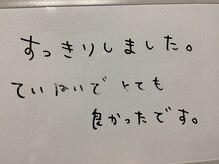 すっきりしました。
ていねいで とても
良かったです。